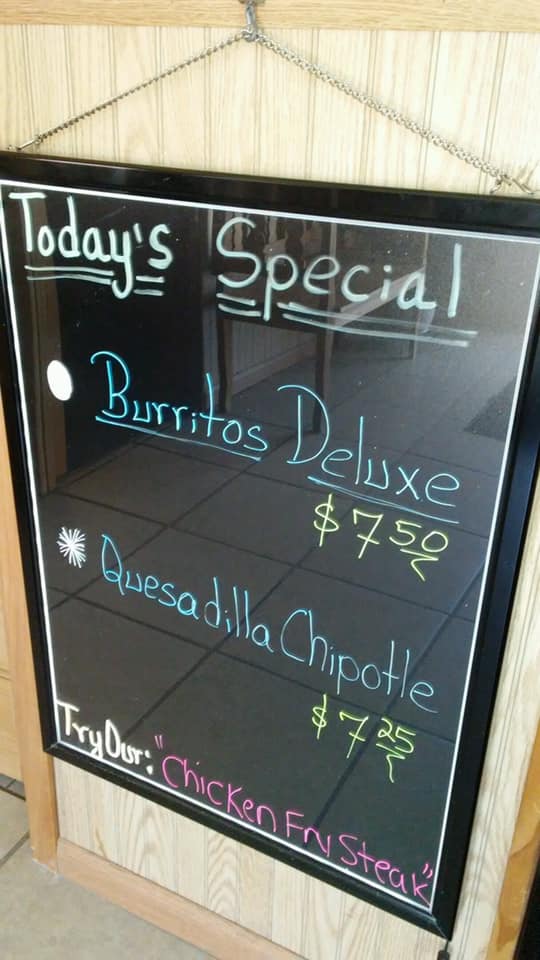 Today's Special
Burritos Deluxe
$7 50
Quesadilla Chipotle
$7 25
Try Our: "Chicken Fry Steak"